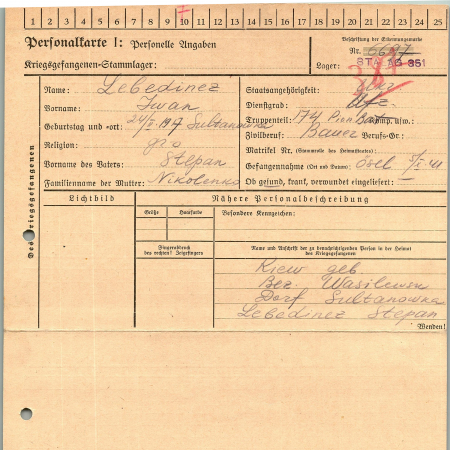 1 2 3 4 5 6 7 8 9 10 11 12 13 14 15 16 17 18 19 20 21 22 23 24 25
Personalkarte I: Personelle Angaben
Kriegsgefangenen-Stammlager:
Beschriftung der Erkennungsmarke
Nr.
Lager: STALAG 351
Des Kriegsgefangenen
Name: Lebedinez
Vorname: Iwan
Geburtstag und -ort: Sultanowka
Religion: gro
Vorname des Vaters: Stepan
Familienname der Mutter: Nikolenko
Staatsangehörigkeit:
Dienstgrad:
Truppenteil: 174 Pion. Bat Komp. usw.:
Zivilberuf: Bauer Berufs-Gr.:
Matrikel Nr. (Stammrolle des Heimatstaates):
Gefangennahme (Ort und Datum): Ösel
Ob gesund, krank, verwundet eingeliefert: —
Lichtbild
Nähere Personalbeschreibung
Größe
Haarfarbe
Besondere Kennzeichen:
Fingerabdruck
des rechten! Zeigefingers
Name und Anschrift der zu benachrichtigenden Person in der Heimat
des Kriegsgefangenen
Kiew geb.
Bez. Wasilewsk
Dorf Sultanowka
Lebedinez Stepan
Wenden!